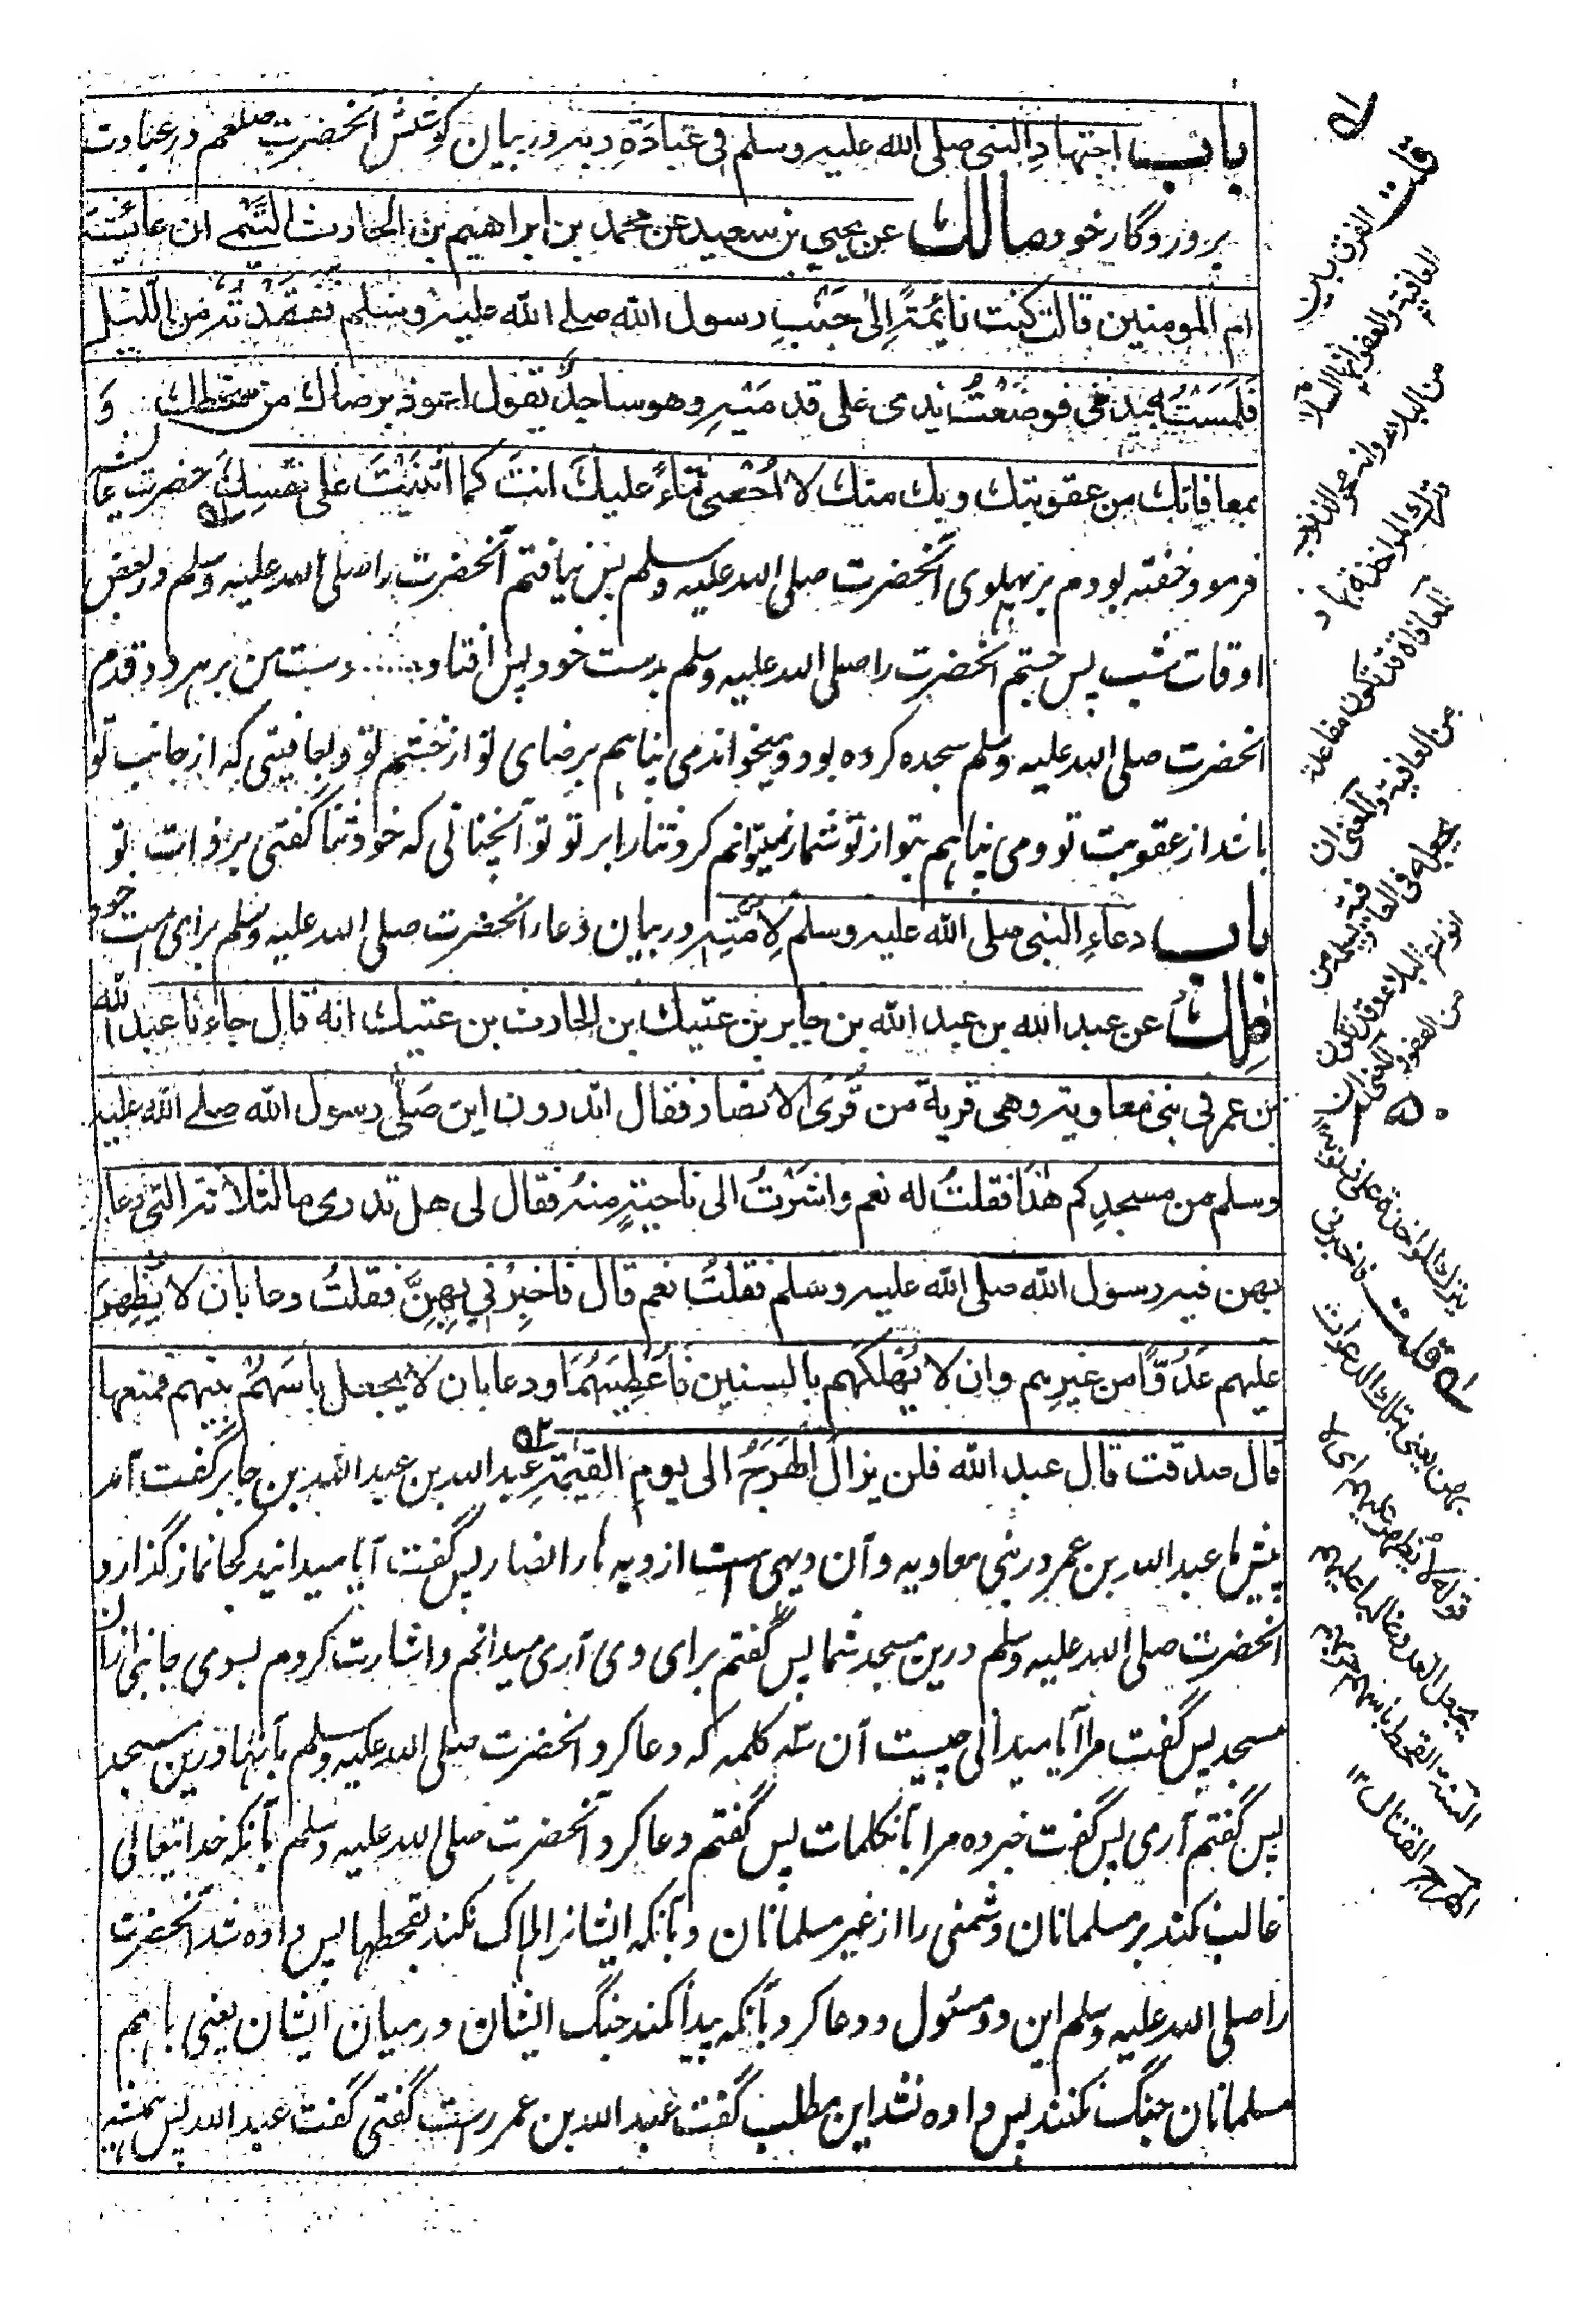 باب اجتهادِ النبی صلی الله علیه وسلم فی عبادَتهِ ربه در بیان کوشش آنحضرت صلعم در عبادت
پروردگار خود مالك عن یحیی بن سعید عن محمد بن ابراهیم بن الحارث التَّیْمی ان عائشة
ام المومنین قالت کنت نائمةً اِلیٰ جَنْبِ رسول الله صلے الله علیه وسلم ففقدتُّه من اللیل
فَلَمَسْتُه بیدی فوضعْتُ یدی علی قدمَیْهِ وهو ساجدٌ یقول اعوذ برضاك من سخطك وَ
بمعافاتك من عقوبتك وبك منك لا اُحْصِی ثناءً علیكَ انتَ کما اثنیتَ علی نفسِكَ حضرت عائشه
فرمود خفته بودم بر پهلوی آنحضرت صلی الله علیه وسلم پس نیافتم آنحضرت را صلی الله علیه وسلم در بعض
اوقات شب پس جستم آنحضرت را صلی الله علیه وسلم بدست خود پس افتاد ...... دست من بر هر دو قدم
آنحضرت صلی الله علیه وسلم سجده کرده بود و میخواند می پناهم برضای تو از خشم تو و بعافیتی که از جانب تو
باشد از عقوبت تو و می پناهم بتو از تو شمار نمیتوانم کرد ثنا را بر تو تو آنچنانی که خود ثنا گفتی بر ذات تو
باب دعاءِ النبی صلی الله علیه وسلم لِاُمَّتِه در بیان دعاء آنحضرت صلی الله علیه وسلم برای امت خود
مالك عن عبد الله بن عبد الله بن جابر بن عتیك بن الحارث بن عتیك انه قال جاءنا عبد الله
بن عمر فی بنی معاویة وهی قریة من قُرَی الانصار فقال اتدرون این صَلّی رسول الله صلے الله علیه
وسلم من مسجدِکم هٰذا فقلتُ له نعم واشَرْتُ الی ناحیةٍ منه فقال لی هل تدری ما الثلاثة التی دعا
بهن فیه رسول الله صلی الله علیه وسلم فقلتُ نعم قال فاخبِرْنی بِهِنَّ فقلتُ دعا بان لا یُظهِرَ
علیهم عَدُوًّا من غیرهم وان لا یُهْلکَهم بالسنین فاُعْطِیَهُمَا ودعا بان لا یجعل بأسَهُمْ بینهم فمنعها
قال صدقت قال عبد الله فلن یزالَ الهَرَجُ الی یوم القیمةِ عبد الله بن عبد الله بن جابر گفت آمد
پیش ما عبد الله بن عمر در بنی معاویه و آن دیهی است از دیه هاء انصار پس گفت آیا میدانید کجا نماز گذارد
آنحضرت صلی الله علیه وسلم درین مسجد شما پس گفتم برای وی آری میدانم و اشارت کردم بسوی جانبی ازان
مسجد پس گفت مرا آیا میدانی چیست آن سه کلمه که دعا کرد آنحضرت صلی الله علیه وسلم بآنها درین مسجد
پس گفتم آری پس گفت خبر ده مرا بآنکلمات پس گفتم دعا کرد آنحضرت صلی الله علیه وسلم بآنکه خدا تعالی
غالب نکند بر مسلمانان دشمنی را از غیر مسلمانان و بآنکه ایشانرا هلاک نکند بقحطها پس داده شد آنحضرت
را صلی الله علیه وسلم این دو مسئول و دعا کرد بآنکه پیدا نکند جنگ ایشان درمیان ایشان یعنی باهم
مسلمانان جنگ نکنند پس داده نشد این مطلب گفت عبد الله بن عمر راست گفتی گفت عبد الله پس همیشه
قلت الفرق بین
العافیة والعفو
من البلاء
ترک المواخذة بها
المعافاة قد تکون مفاعلة
من العافیة والمعنی ان
من العفو والمعنی ان
قلت فاخبرنی
بهن یعنی بتلك الدعوات
قوله لا یظهر علیهم ای لا
یجعل العدو غالبا علیهم
السنة القحط بأسهم حربهم
الهرج القتال ۱۲